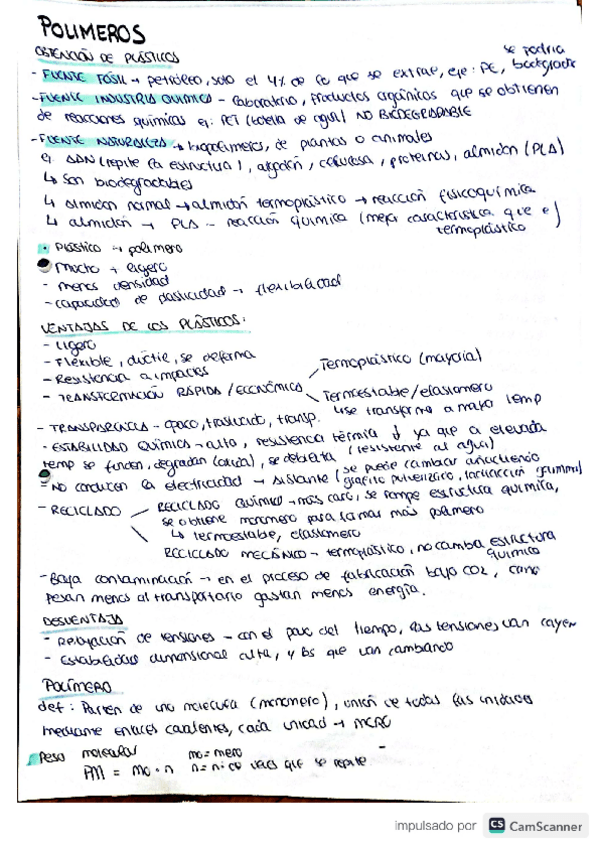 POLIMEROS
OBTENCIÓN DE PLÁSTICOS
se podría
- FUENTE FÓSIL → petróleo, solo el 4% de lo que se extrae, eje: PE, biodegrade
- FUENTE INDUSTRIA QUIMICA - laboratorio, productos orgánicos que se obtienen
de reacciones químicas ej: PET (botella de agua) NO BIODEGRADABLE
- FUENTE NATURALEZA → biopolimeros, de plantas o animales
ej ADN (repite la estructura), algodón, celulosa, proteinas, almidón (PLA)
↳ Son biodegradables
↳ almidón normal → almidón termoplástico → reacción fisicoquímica
↳ almidón → PLA - reacción química (mejor característica que el
termoplástico)
Plástico → polímero
Mucho + ligero
- menos densidad
- capacidad de plasticidad → flexibilidad
VENTAJAS DE LOS PLÁSTICOS:
- Ligero
- Flexible, ductil, se deforma
- Resistencia a impactos
Termoplástico (mayoría)
- TRANSFORMACIÓN RÁPIDA / ECONÓMICA
Termoestable / elastomero
↳ se transforma a mayor temp
- TRANSPARENCIA - opaco, traslucido, transp.
- ESTABILIDAD QUÍMICA → alta, resistencia térmica ↓ ya que a elevada
temp se funden, degradan, se debilita (resistente al agua)
- NO conducen la electricidad → aislante (se puede cambiar añadiendo
grafito pulverizado,
- RECICLADO
RECICLADO QUÍMICO → más caro, se rompe estructura química,
se obtiene monomero para formar más polimero
↳ termoestable, elastomero
RECICLADO MECÁNICO → termoplástico, no cambia estructura
química
- Baja contaminación → en el proceso de fabricación bajo CO2, como
pesan menos al transportarlo gastan menos energía.
DESVENTAJA
- RELAJACIÓN de tensiones - con el paso del tiempo, las tensiones van cayendo
- Estabilidad dimensional alta, y los que van cambiando
POLÍMERO
def: Parten de una molécula (monomero), unión de todas las unidades
mediante enlaces covalentes, cada unidad → MERO
Peso molecular
mo = mero
PM = mo · n
n = nº de veces que se repite
impulsado por CS CamScanner